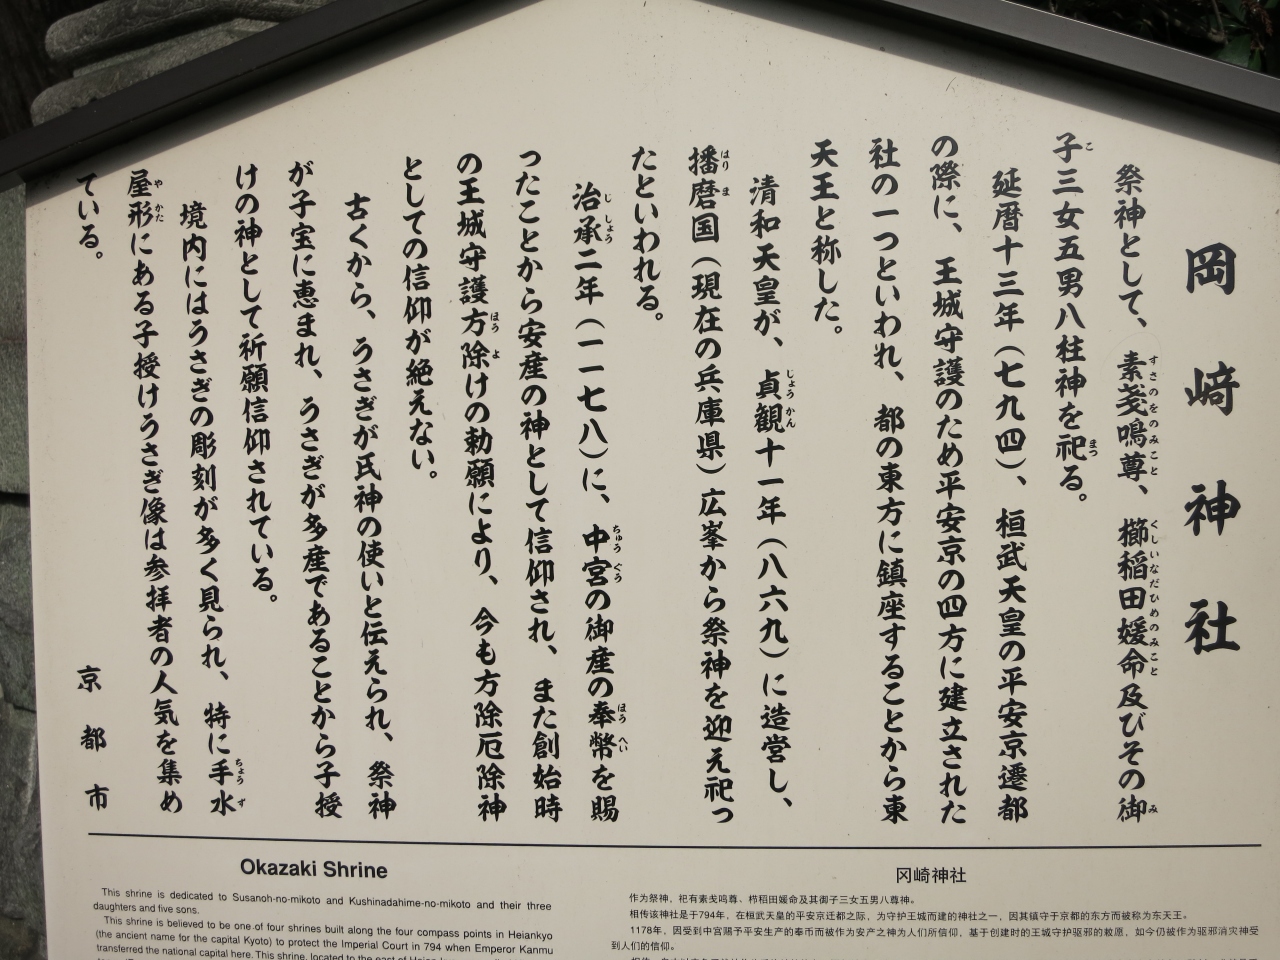 岡﨑神社
祭神として、素戔鳴尊、櫛稲田媛命及びその御
子三女五男八柱神を祀る。
延暦十三年（七九四）、桓武天皇の平安京遷都
の際に、王城守護のため平安京の四方に建立された
社の一つといわれ、都の東方に鎮座することから東
天王と称した。
清和天皇が、貞観十一年（八六九）に造営し、
播磨国（現在の兵庫県）広峯から祭神を迎え祀っ
たといわれる。
治承二年（一一七八）に、中宮の御産の奉幣を賜
ったことから安産の神として信仰され、また創始時
の王城守護方除けの勅願により、今も方除厄除神
としての信仰が絶えない。
古くから、うさぎが氏神の使いと伝えられ、祭神
が子宝に恵まれ、うさぎが多産であることから子授
けの神として祈願信仰されている。
境内にはうさぎの彫刻が多く見られ、特に手水
屋形にある子授けうさぎ像は参拝者の人気を集め
ている。
京都市
Okazaki Shrine
This shrine is dedicated to Susanoh-no-mikoto and Kushinadahime-no-mikoto and their three
daughters and five sons.
This shrine is believed to be one of four shrines built along the four compass points in Heiankyo
(the ancient name for the capital Kyoto) to protect the Imperial Court in 794 when Emperor Kanmu
transferred the national capital here. This shrine, located to the east of
冈崎神社
作为祭神，祀有素戋鸣尊、栉稻田媛命及其御子三女五男八尊神。
相传该神社是于794年，在桓武天皇的平安京迁都之际，为守护王城而建的神社之一，因其镇守于京都的东方而被称为东天王。
1178年，因受到中宫赐予平安生产的奉币而被作为安产之神为人们所信仰，基于创建时的王城守护驱邪的敕愿，如今仍被作为驱邪消灾神受
到人们的信仰。